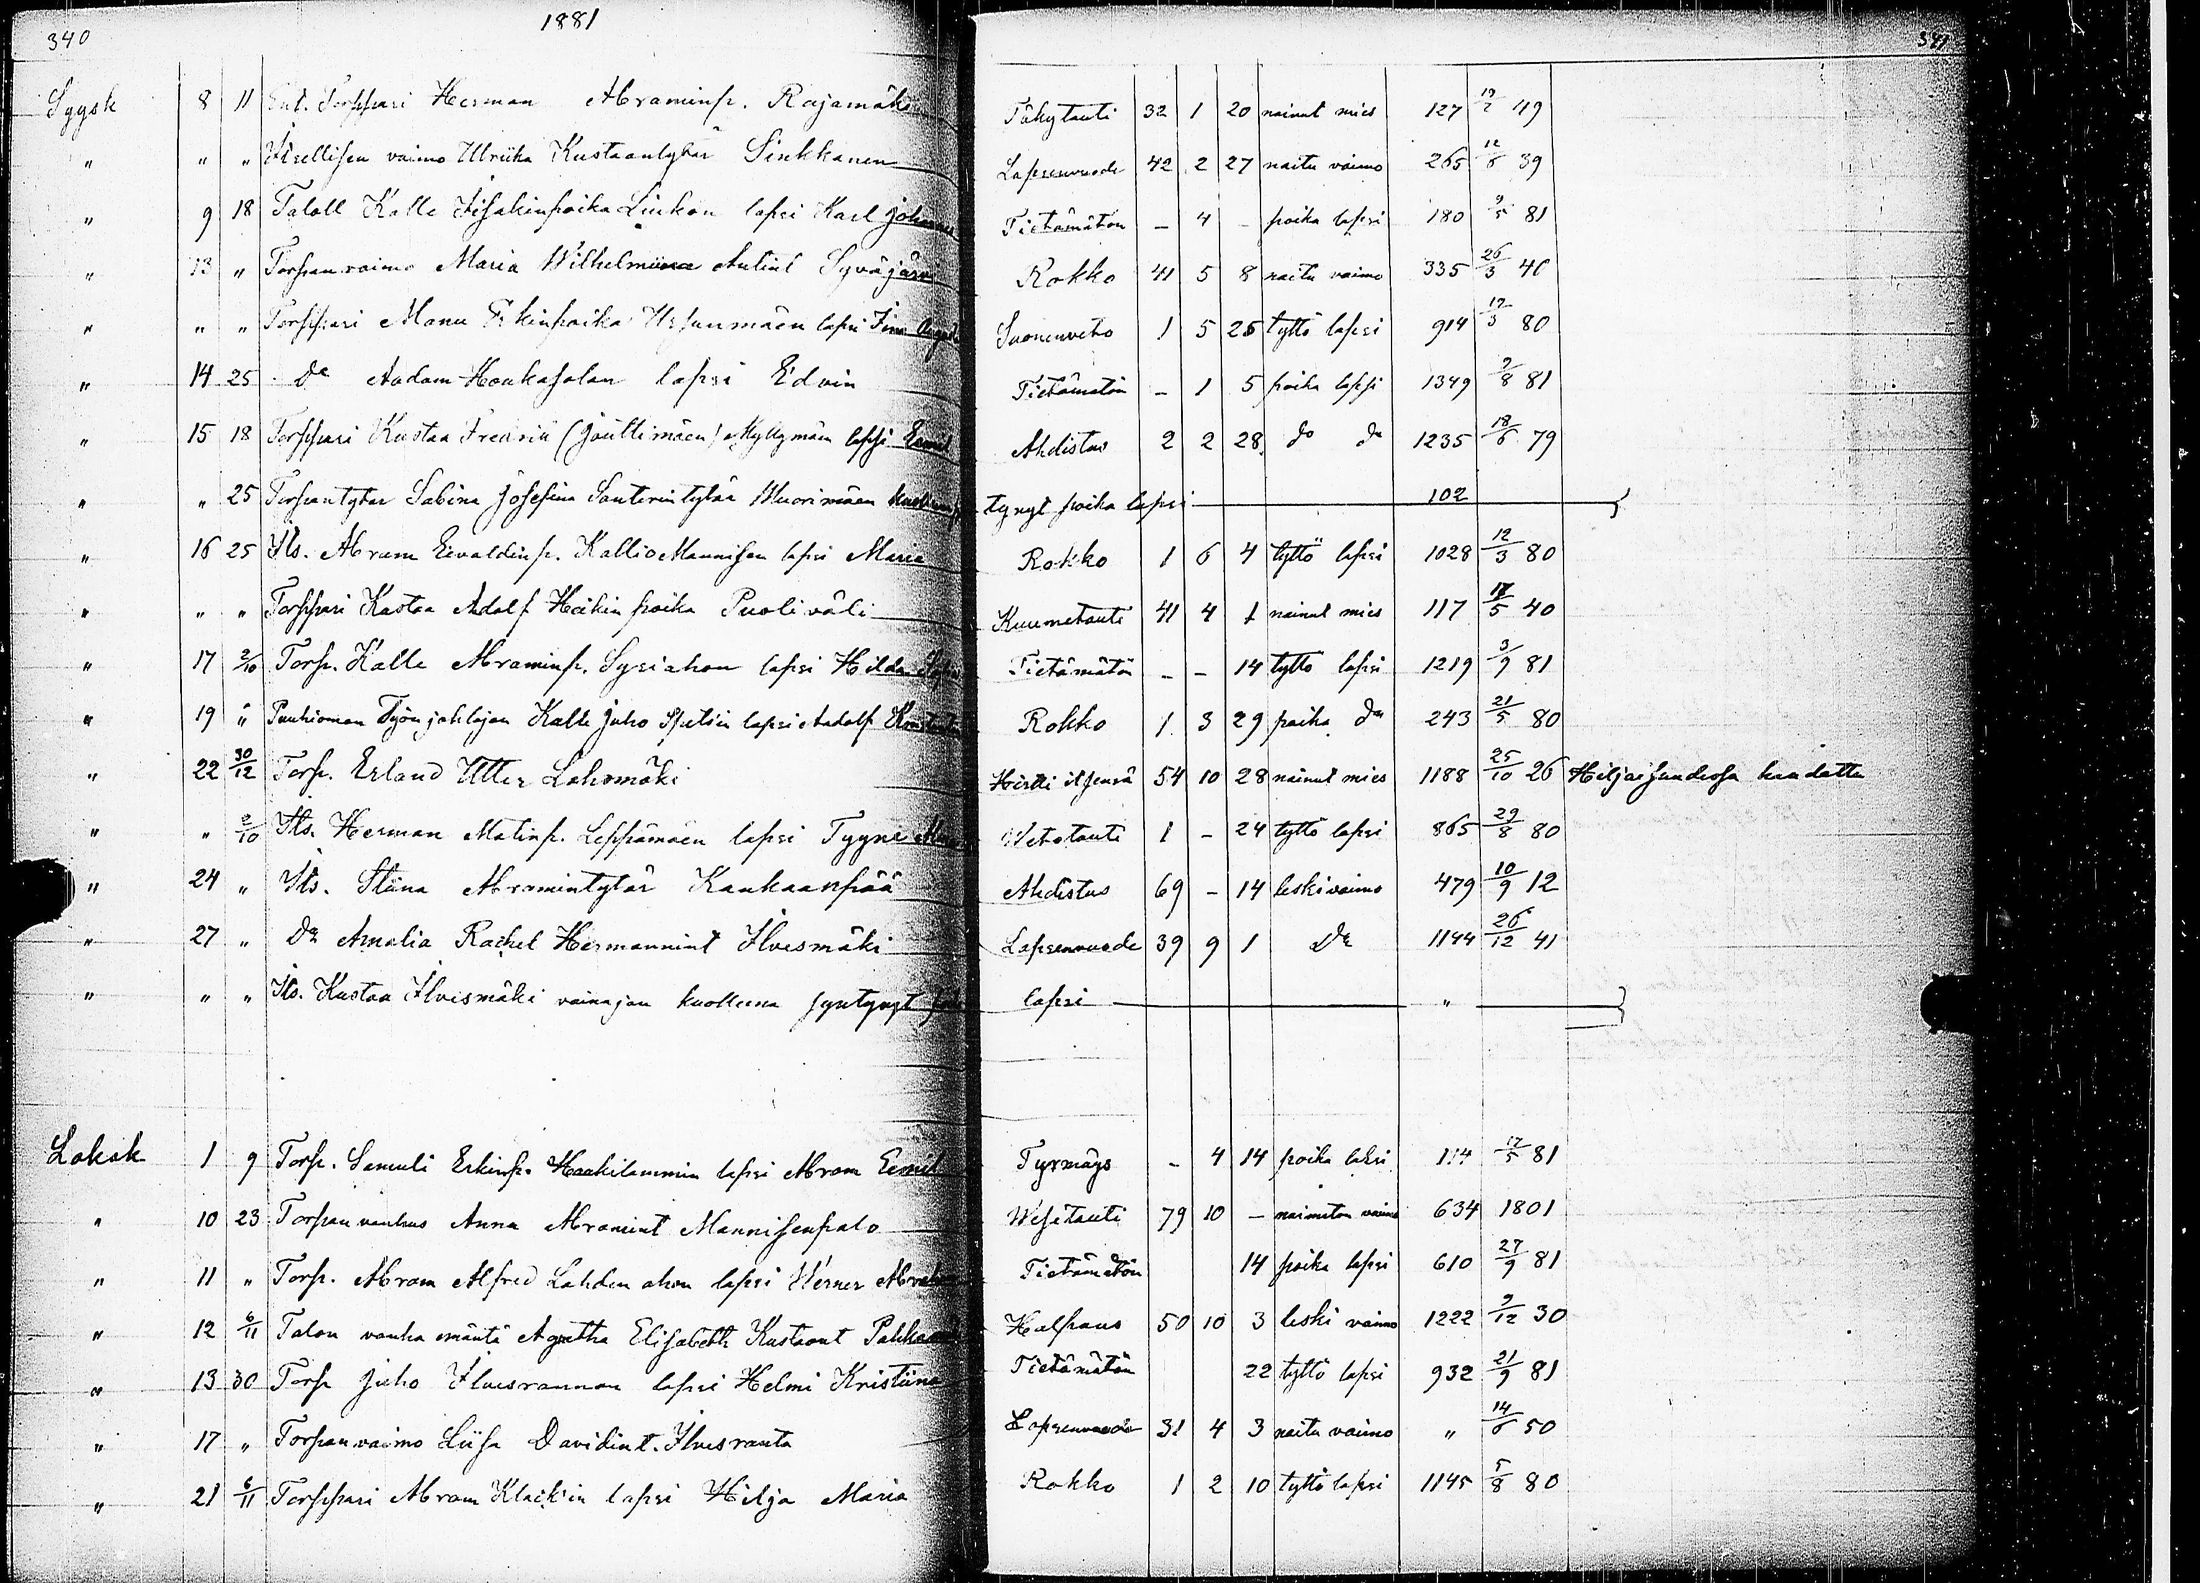 340
1881
341
Syysk 8 11 Ent. Torppari Herman Abraminp. Rajamäki Tähytauti 32 1 20 nainut mies 127 19/7 49
" " " Itsellisen vaimo Ulriika Kustaantytär Sinkkanen Lapsenvuode 42 2 27 naitu vaimo 265 12/6 39
" 9 18 Taloll Kalle Iisakinpoika Linkon lapsi Karl Johannes Tietämätön – 4 – poika lapsi 180 9/5 81
" 13 " Torpan vaimo Maria Wilhelmiina Antint Syväjärvi Rokko 41 5 8 naitu vaimo 335 26/3 40
" " " Torppari Manu Erkinpoika lapsi Suonenveto 1 5 26 tyttö lapsi 914 17/3 80
" 14 25 Do Aadam Honkasalon lapsi Edvin Tietämätön – 1 5 poika lapsi 1349 9/8 81
" 15 18 Torppari Kustaa Fredrik (Jouttimäen) Myllymäen lapsi Ahdistus 2 2 28 do do 1235 18/6 79
" " 25 Torpantytär Sabina Josefina Santerintytär Wuorimäen tynyt poika lapsi 102
" 16 25 Its. Abram Eevaldinp. Kallio Mannisen lapsi Maria Rokko 1 6 4 tyttö lapsi 1028 12/3 80
" " " Torppari Kustaa Adolf Heikinpoika Puoliväli Kuumetauti 41 4 1 nainut mies 117 /5 40
" 17 2/10 Torp. Kalle Abraminp. Sysiahon lapsi Hilda Tietämätön – – 14 tyttö lapsi 1219 3/9 81
" 19 " Puuhioman Työn johtajan Kalle Juho lapsi Aadolf Rokko 1 3 29 poika do 243 21/5 80
" 22 30/12 Torp. Erland Utter Lahomäki Hirtti itsensä 54 10 28 nainut mies 1188 25/10 26 Hiljaisuudessa haudattu
" " 2/10 Its. Herman Matinp. Leppämäen lapsi Tyyne Wetotauti 1 – 24 tyttö lapsi 865 29/8 80
" 24 " Its. Stiina Abramintytär Kankaanpää Ahdistus 69 – 14 leskivaimo 479 10/9 12
" 27 " Do Amalia Rachel Hermannint Ilvesmäki Lapsenvuode 39 9 1 Do 1144 26/12 41
" " " Its. Kustaa Ilvesmäki vainajan kuolleena syntynyt lapsi "
Lokak 1 9 Torp. Samuli Erkinp. Haukilammin lapsi Abram Eemil Tyrmäys – 4 14 poika lapsi 114 17/5 81
" 10 23 Torpan vanhus Anna Abramint Mannisenpalo Wesitauti 79 10 – naimaton vaimo 634 1801
" 11 " Torp. Abram Alfred Lahden ahon lapsi Werner Abraham Tietämätön 14 poika lapsi 610 27/9 81
" 12 6/11 Talon vanha emäntä Agatha Elisabeth Kustaant Halpaus 50 10 3 leski vaimo 1222 9/12 30
" 13 30 Torp Juho Ilvesrannan lapsi Helmi Kristiina Tietämätön 22 tyttö lapsi 932 21/9 81
" 17 " Torpanvaimo Liisa Davidint. Ilvesranta Lapsenvuode 31 4 3 naitu vaimo " 14/6 50
" 21 6/11 Torppari Abram lapsi Hilja Maria Rokko 1 2 10 tyttö lapsi 1145 5/8 80